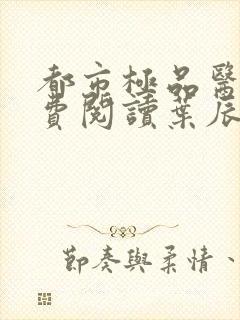 都市極品醫
費閱讀葉辰
節奏與柔情、